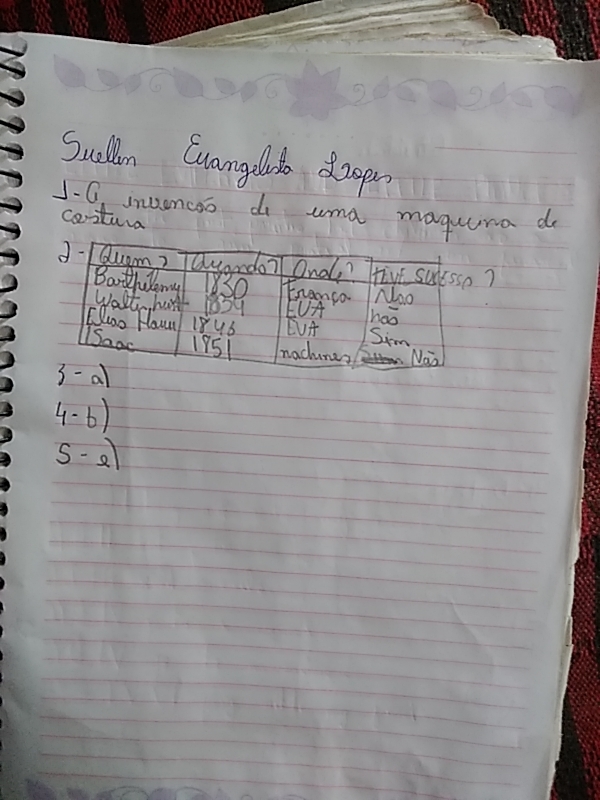 Suellen Evangelista Lopes
1-A invencos de uma maquina de
costura
2- Quem? Quando? Onde? TIVE SUCESSO?
Barthélemy 1830 França Não
Walter hunt 1834 EUA não
Elias 1846 EUA Sim
Isaac 1851 machines Não
3-a)
4-b)
5-e)